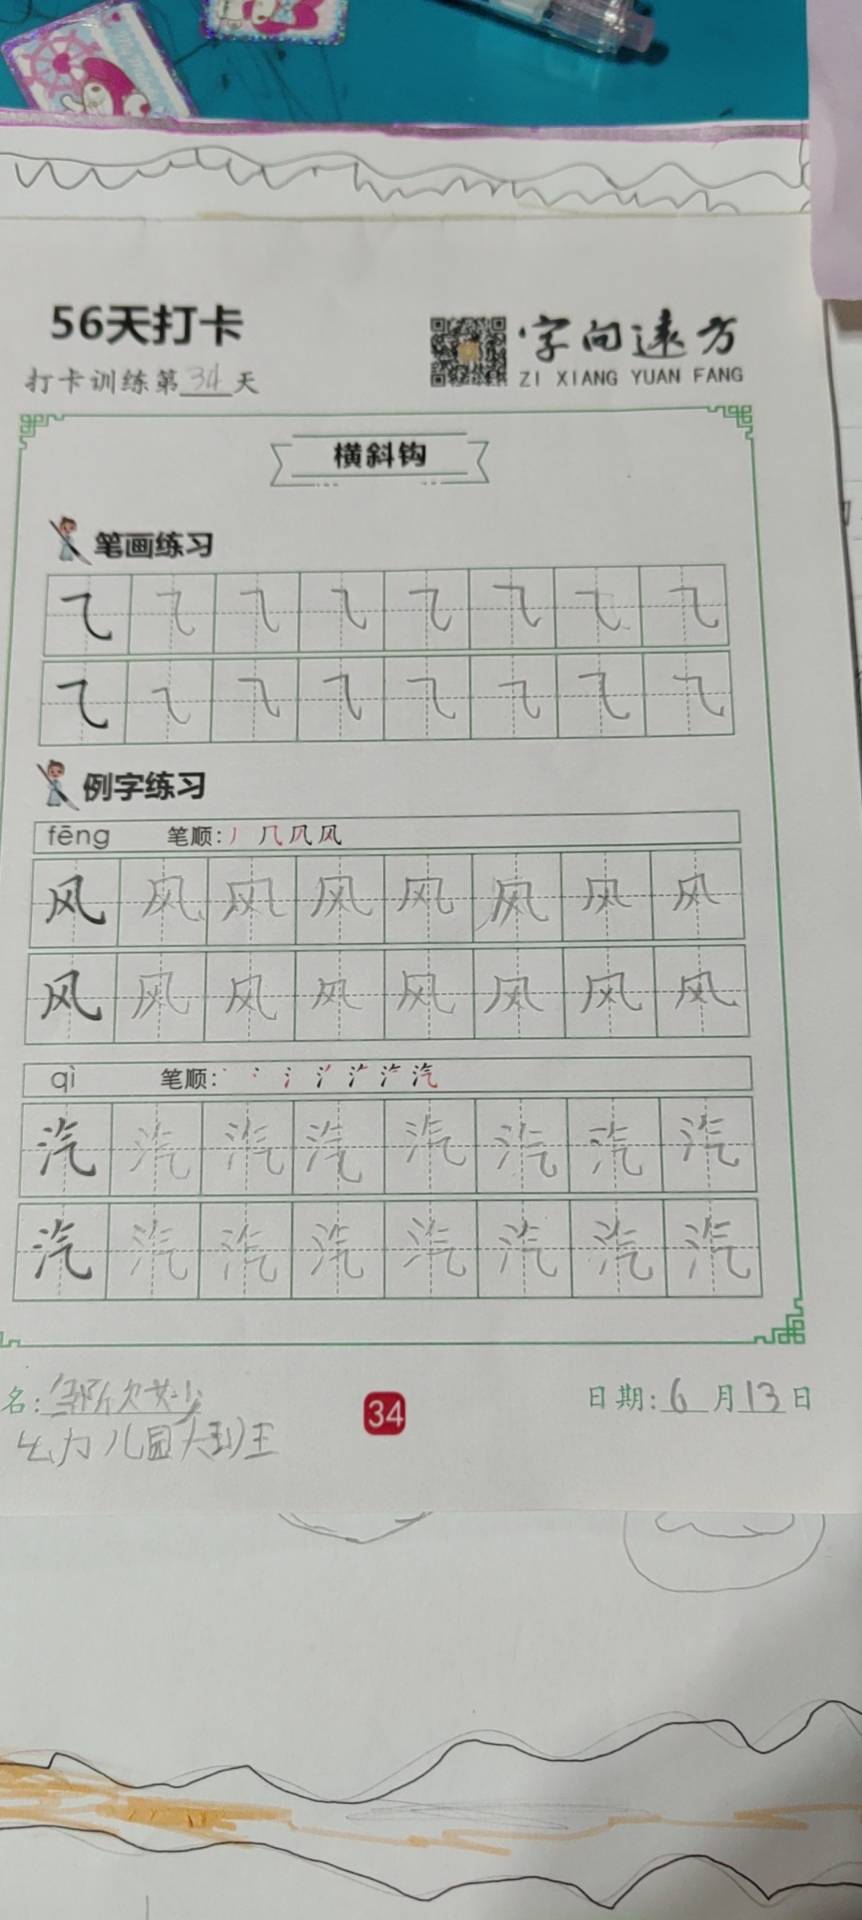 56天打卡
字向远方
ZI XIANG YUAN FANG
打卡训练第34天
横斜钩
笔画练习
㇈ ㇈ ㇈ ㇈ ㇈ ㇈ ㇈ ㇈
㇈ ㇈ ㇈ ㇈ ㇈ ㇈ ㇈ ㇈
例字练习
fēng 笔顺: 丿 几 凤 风
风 风 风 风 风 风 风 风
风 风 风 风 风 风 风 风
qì 笔顺: 丶 冫 氵 汽
汽 汽 汽 汽 汽 汽 汽 汽
汽 汽 汽 汽 汽 汽 汽 汽
名: 邹欣
34
日期: 6月13日
幼儿园大班王